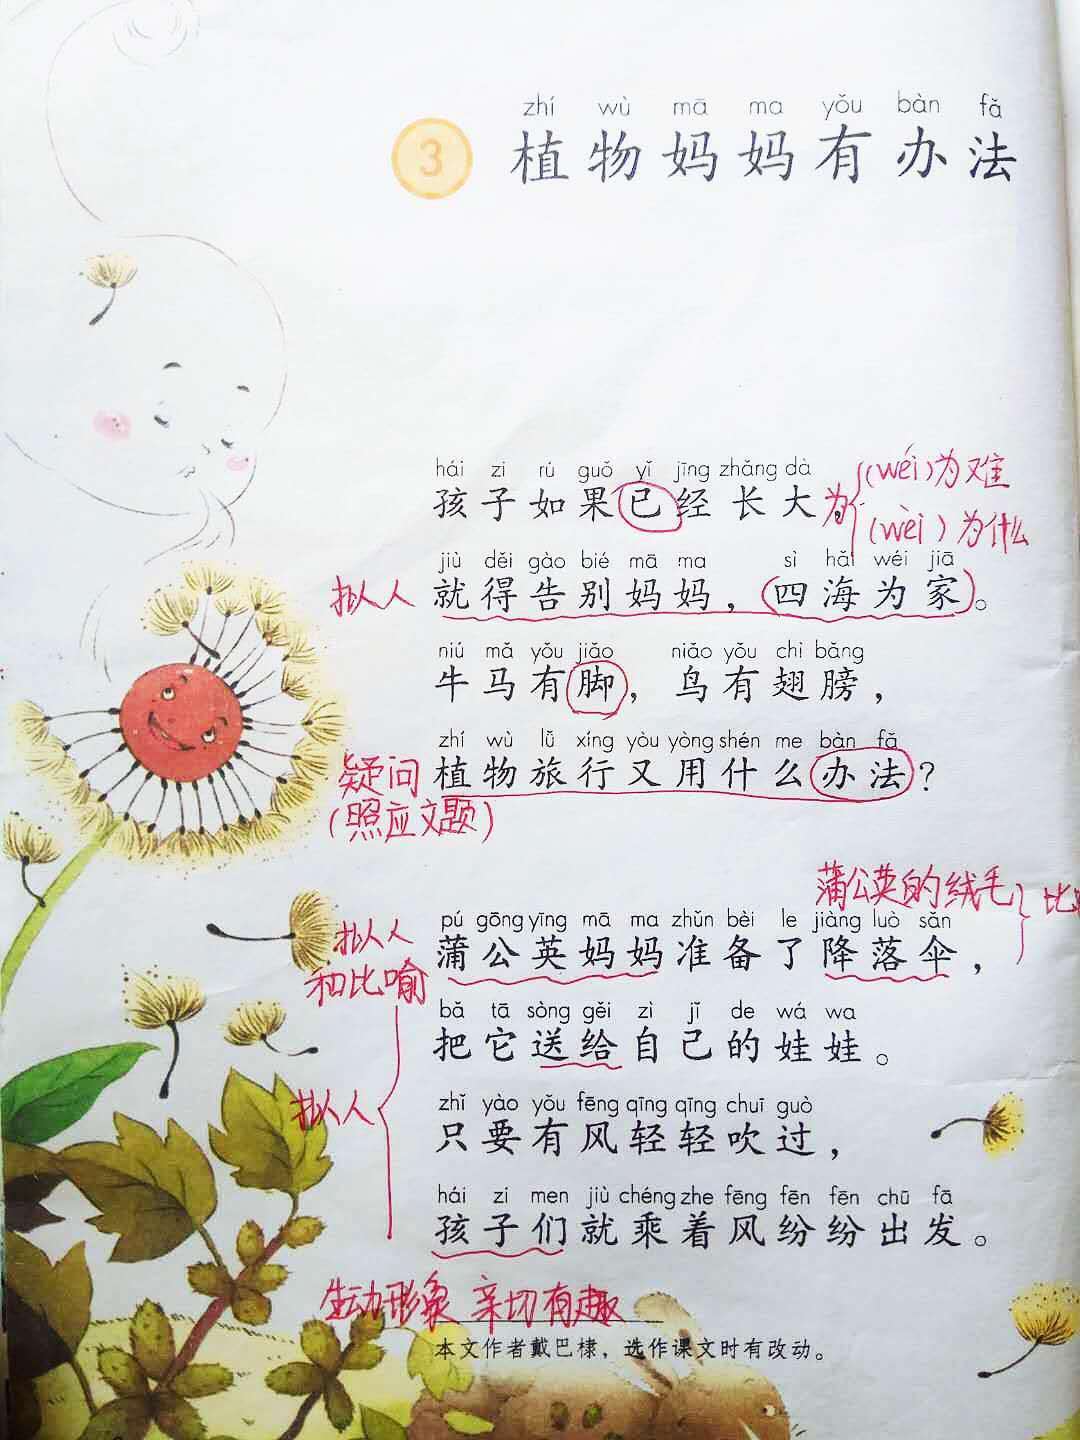 zhí wù mā ma yǒu bàn fǎ
3 植物妈妈有办法
hái zi rú guǒ yǐ jīng zhǎng dà
孩子如果已经长大，
为 (wéi)为难
(wèi)为什么
jiù děi gào bié mā ma sì hǎi wéi jiā
拟人 就得告别妈妈，(四海为家)。
niú mǎ yǒu jiǎo niǎo yǒu chì bǎng
牛马有脚，鸟有翅膀，
zhí wù lǚ xíng yòu yòng shén me bàn fǎ
疑问 植物旅行又用什么办法？
(照应文题)
蒲公英的绒毛
pú gōng yīng mā ma zhǔn bèi le jiàng luò sǎn
拟人 蒲公英妈妈准备了降落伞，
和比喻
bǎ tā sòng gěi zì jǐ de wá wa
把它送给自己的娃娃。
zhǐ yào yǒu fēng qīng qīng chuī guò
拟人 只要有风轻轻吹过，
hái zi men jiù chéng zhe fēng fēn fēn chū fā
孩子们就乘着风纷纷出发。
生动形象 亲切有趣
本文作者戴巴棣，选作课文时有改动。